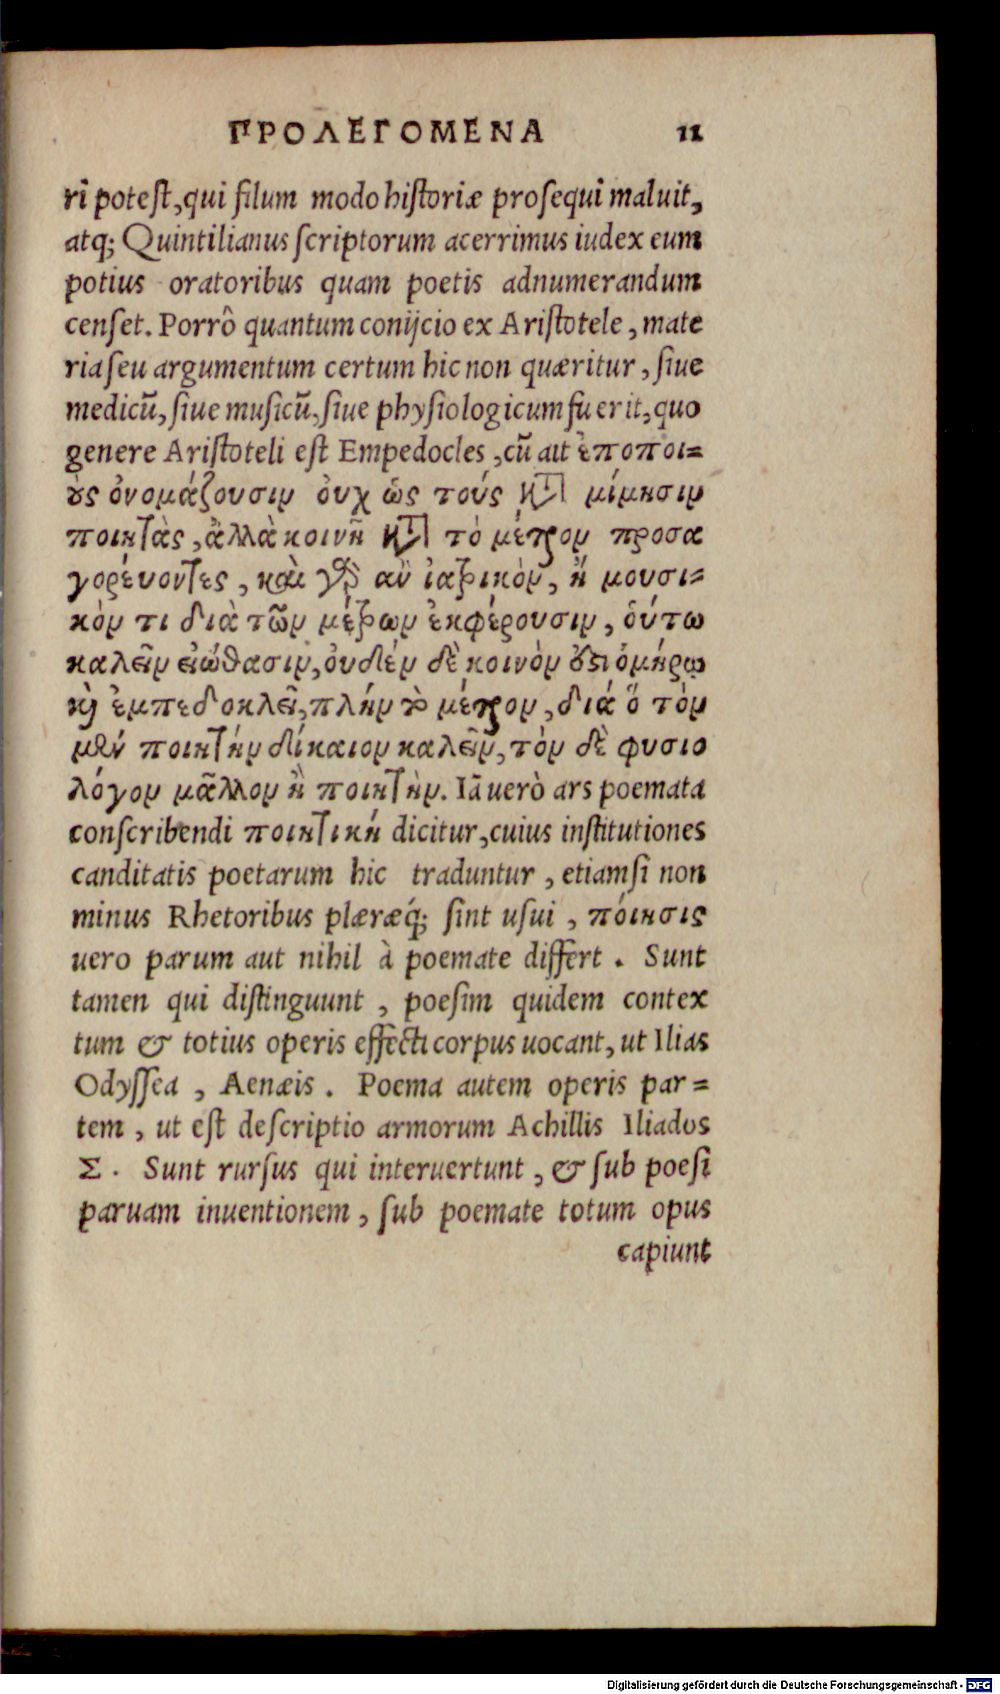 ΠΡΟΛΕΓΟΜΕΝΑ 11
ri potest, qui filum modo historiæ prosequi maluit,
atq; Quintilianus scriptorum acerrimus iudex eum
potius oratoribus quam poetis adnumerandum
censet. Porrô quantum conijcio ex Aristotele, mate
ria seu argumentum certum hic non quæritur, siue
medicū, siue musicū, siue physiologicum fuerit, quo
genere Aristoteli est Empedocles, cū ait ἐποποι=
ȣ̀ς ὀνομάζουσιν ὀυχ ὡς τούς κατὰ μίμησιν
ποιητὰς, ἀλλὰ κοινῇ κατὰ τὸ μέτρον προσα
γορέυοντες, καὶ γὰρ ἂν ἰατρικὸν, ἤ μουσι=
κὸν τι διὰ τῶν μέτρων ἐκφέρουσιν, ὁύτω
καλεῖν ἐιώθασιν, ὀυδέν δὲ κοινὸν ὅτι ὁμήρῳ
κὶ ἐμπεδοκλεῖ, πλήν τὸ μέτρον, διά ὅ τὸν
μὲν ποιητήν δίκαιον καλεῖν, τὸν δὲ φυσιο
λόγον μᾶλλον ἢ ποιητὴν. Iā uerò ars poemata
conscribendi ποιητική dicitur, cuius institutiones
canditatis poetarum hic traduntur, etiamsi non
minus Rhetoribus plæræq́; sint usui, πόιησις
uero parum aut nihil à poemate differt. Sunt
tamen qui distinguunt, poesim quidem contex
tum & totius operis effecti corpus uocant, ut Ilias
Odyssea, Aenæis. Poema autem operis par=
tem, ut est descriptio armorum Achillis Iliados
Σ. Sunt rursus qui interuertunt, & sub poesi
paruam inuentionem, sub poemate totum opus
capiunt
Digitalisierung gefördert durch die Deutsche Forschungsgemeinschaft - DFG